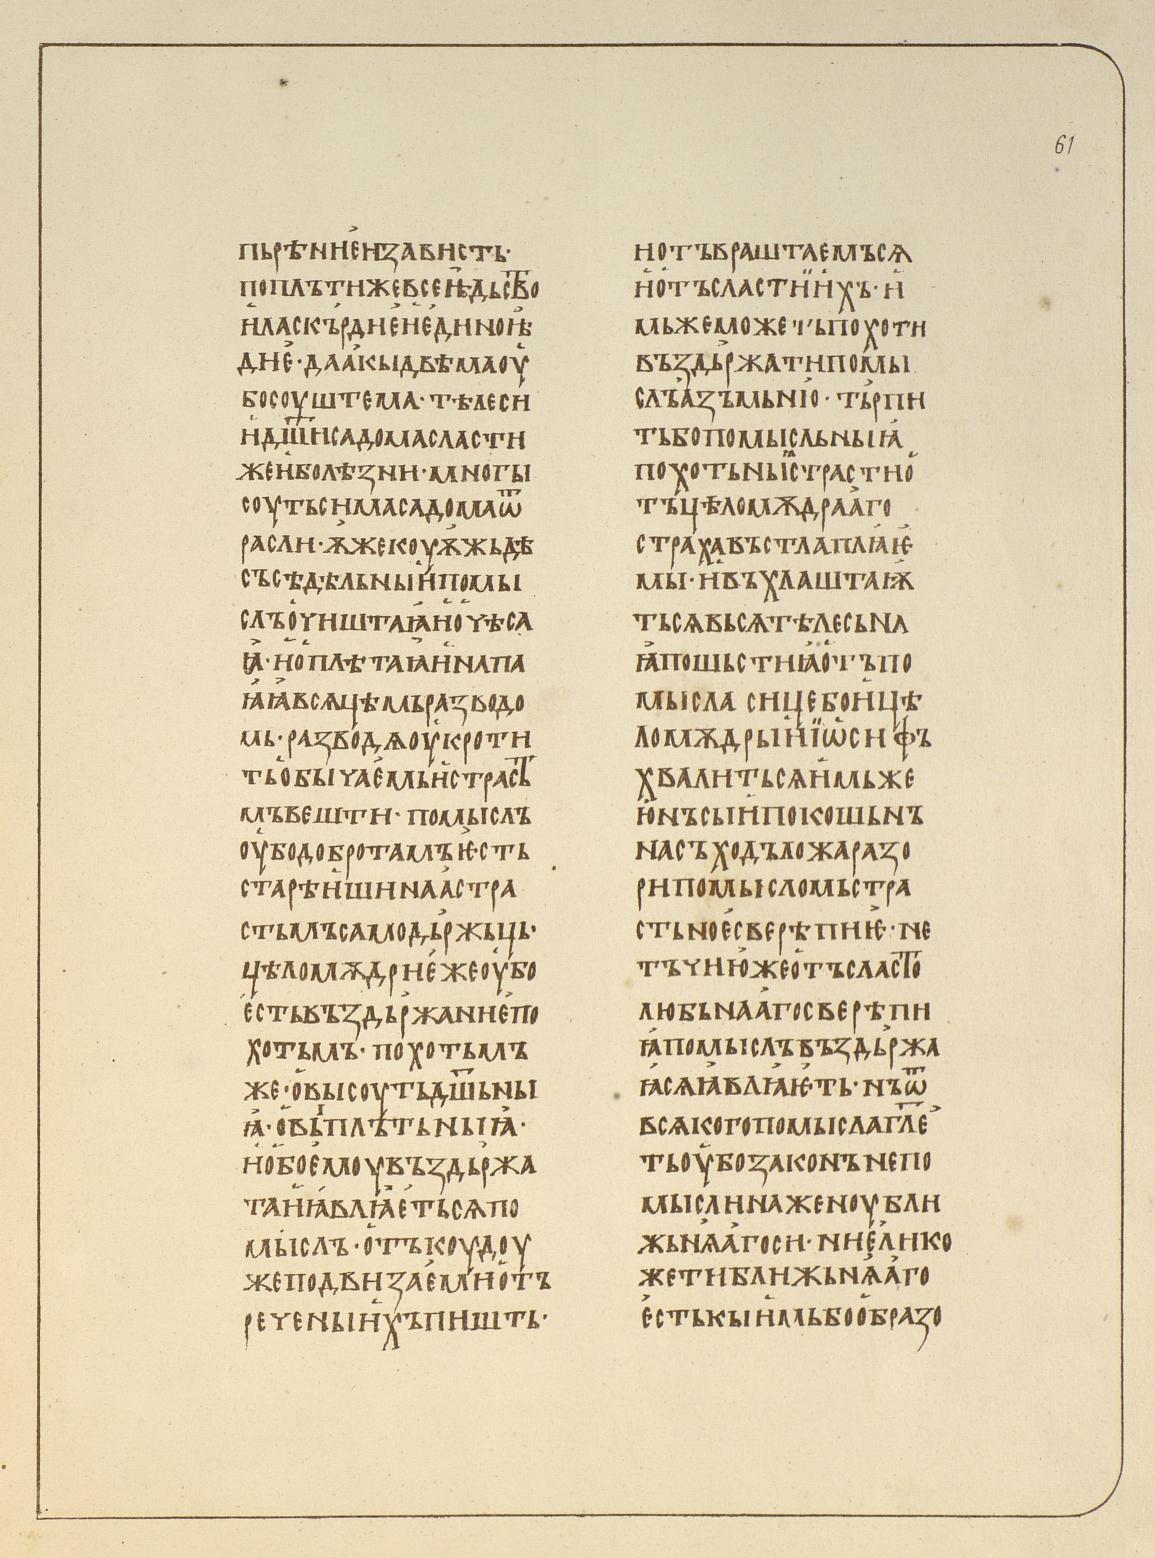 61
пьрѣниѥизависть·
поплътижевсеꙗдьство
иласкърдиѥиѥдиноѥ
диѥ·даакыдвѣмаоу
босоуштема·тѣлеси
идш҃исадомасласти
жеиболѣзни·многы
соутьсимасадомаѿ
расли·ѫжекоуѭжьдѣ
съсѣдѣльныипомы
слъоуиштаꙗиоучѣса
ꙗ·иоплѣтаꙗинапа
ꙗꙗвсѧцѣмьразводо
мь·разводѧоукроти
тьобычаемьистрасть
мъвешти·помыслъ
оубодобротамъѥсть
старѣишинаастра
стьмъсамодьржьць·
цѣломѫдриежеоубо
естьвъздьржаниепо
хотьмъ·похотьмъ
же·овысоутьдш҃ьны
ꙗ·овыплътьныꙗ·
иобоѥмоувъздьржа
таиꙗвлꙗетьсѧпо
мыслъ·отъкоудоу
жеподвизаеминотъ
реченыихъпишть·
нотъвраштаемъсѧ
иотъсластиихъ·и
мьжеможетьпохоти
въздьржатипомы
слъазъмьню·тьрпи
тьбопомысльныꙗ
похотьныꙗстрастио
тъцѣломѫдрааго
страхавъстаплꙗѥ
мы·ивъхлаштаѭ
тьсѧвьсѧтѣлесьна
ꙗпошьстиꙗотъпо
мысла сицебоицѣ
ломѫдрыиїѡсифъ
хвалитьсѧимьже
юнъсыипокошьнъ
насъходъложаразо
рипомысломьстра
стьноесверѣпиѥ·не
тъчиюжеотъсласто
любьнаагосверѣпи
ꙗпомыслъвъздьржа
ꙗсѧꙗвлꙗѥть·нъѿ
всѧкогопомыслаглѥ
тьоубозаконънепо
мыслинаженоубли
жьнѧагоси·ниелико
жетиближьнѧаго
естькыимьбообразо